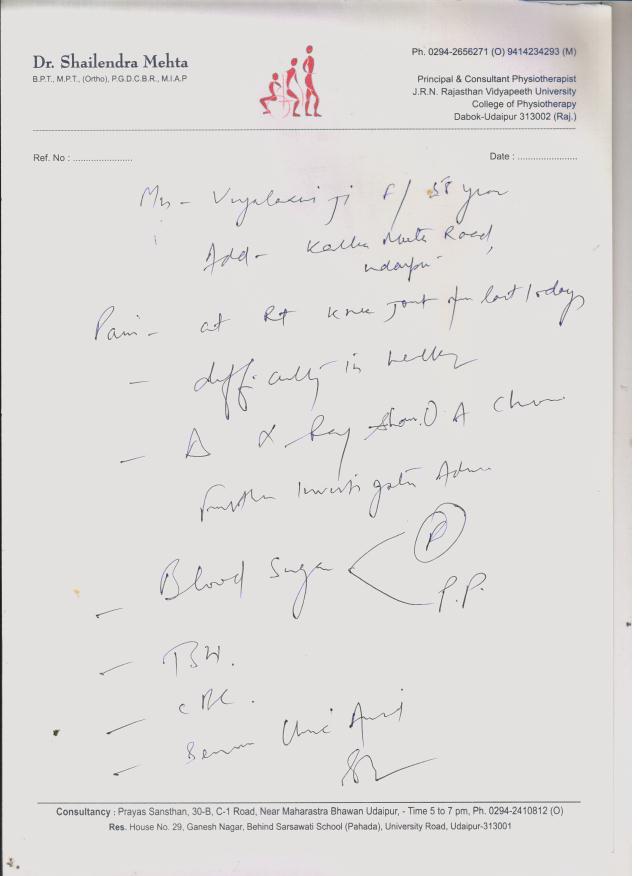 Dr. Shailendra Mehta
B.P.T., M.P.T., (Ortho), P.G.D.C.B.R., M.I.A.P
Ph. 0294-2656271 (O) 9414234293 (M)
Principal & Consultant Physiotherapist
J.R.N. Rajasthan Vidyapeeth University
College of Physiotherapy
Dabok-Udaipur 313002 (Raj.)
Ref. No : ......................
Date : ......................
ji F/ 58 year
Add - Road,
Udaipur
Pain - at Rt Knee joint last 10 days
- difficulty in
- Δ X Ray Show O A
Further Investigation
- Blood Sugar F
P.P.
-
- CBC.
- Serum Uric Acid
Consultancy : Prayas Sansthan, 30-B, C-1 Road, Near Maharastra Bhawan Udaipur, - Time 5 to 7 pm, Ph. 0294-2410812 (O)
Res. House No. 29, Ganesh Nagar, Behind Sarsawati School (Pahada), University Road, Udaipur-313001